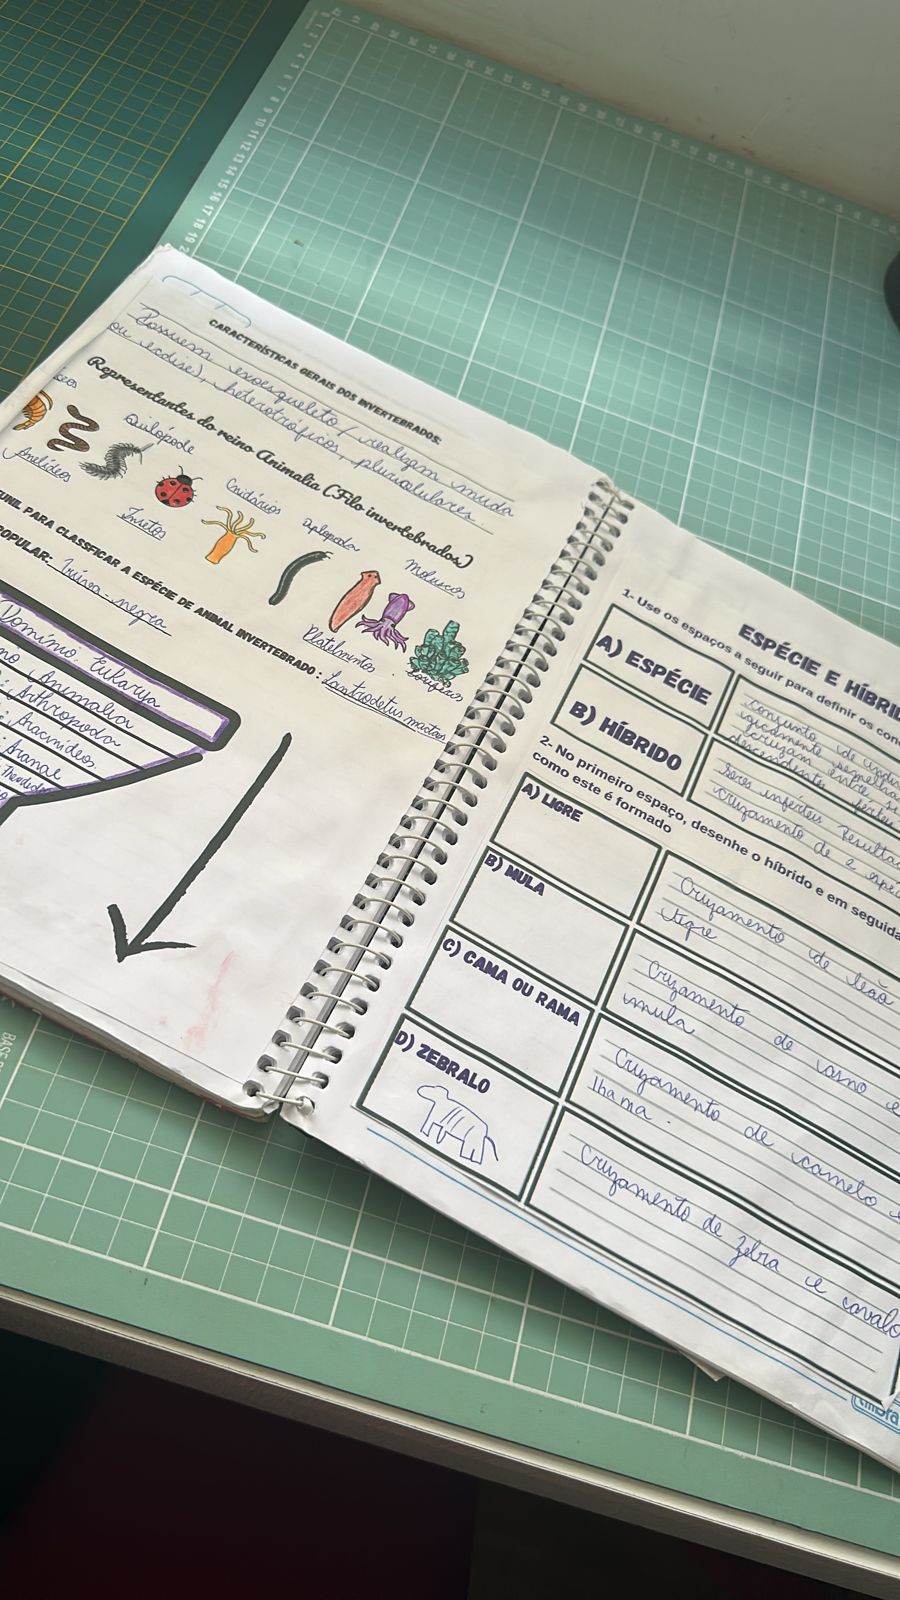 CARACTERÍSTICAS GERAIS DOS INVERTEBRADOS:
Possuem exoesqueleto / realizam muda
ou ecdise), heterotróficos, pluricelulares.
Representantes do reino Animalia (Filo invertebrados)
Anelídeos
Quilópode
Insetos
Cnidários
Diplopoda
Platelmintos
Moluscos
FUNIL PARA CLASSFICAR A ESPÉCIE DE ANIMAL INVERTEBRADO: Lactrodetus mactans
POPULAR: Viúva-negra
Domínio: Eukarya
Animalia
Arthropoda
Aracnídeos
Aranae
ESPÉCIE E HÍBRID
1- Use os espaços a seguir para definir os con
A) ESPÉCIE
conjunto de
descendentes férteis
B) HÍBRIDO
Seres inférteis Resulta
cruzamento de 2
2. No primeiro espaço, desenhe o híbrido e em seguida
como este é formado
A) LIGRE
Cruzamento de leão
tigre
B) MULA
Cruzamento de asno e
mula
C) CAMA OU RAMA
Cruzamento de camelo e
lhama
D) ZEBRALO
Cruzamento de zebra e cavalo